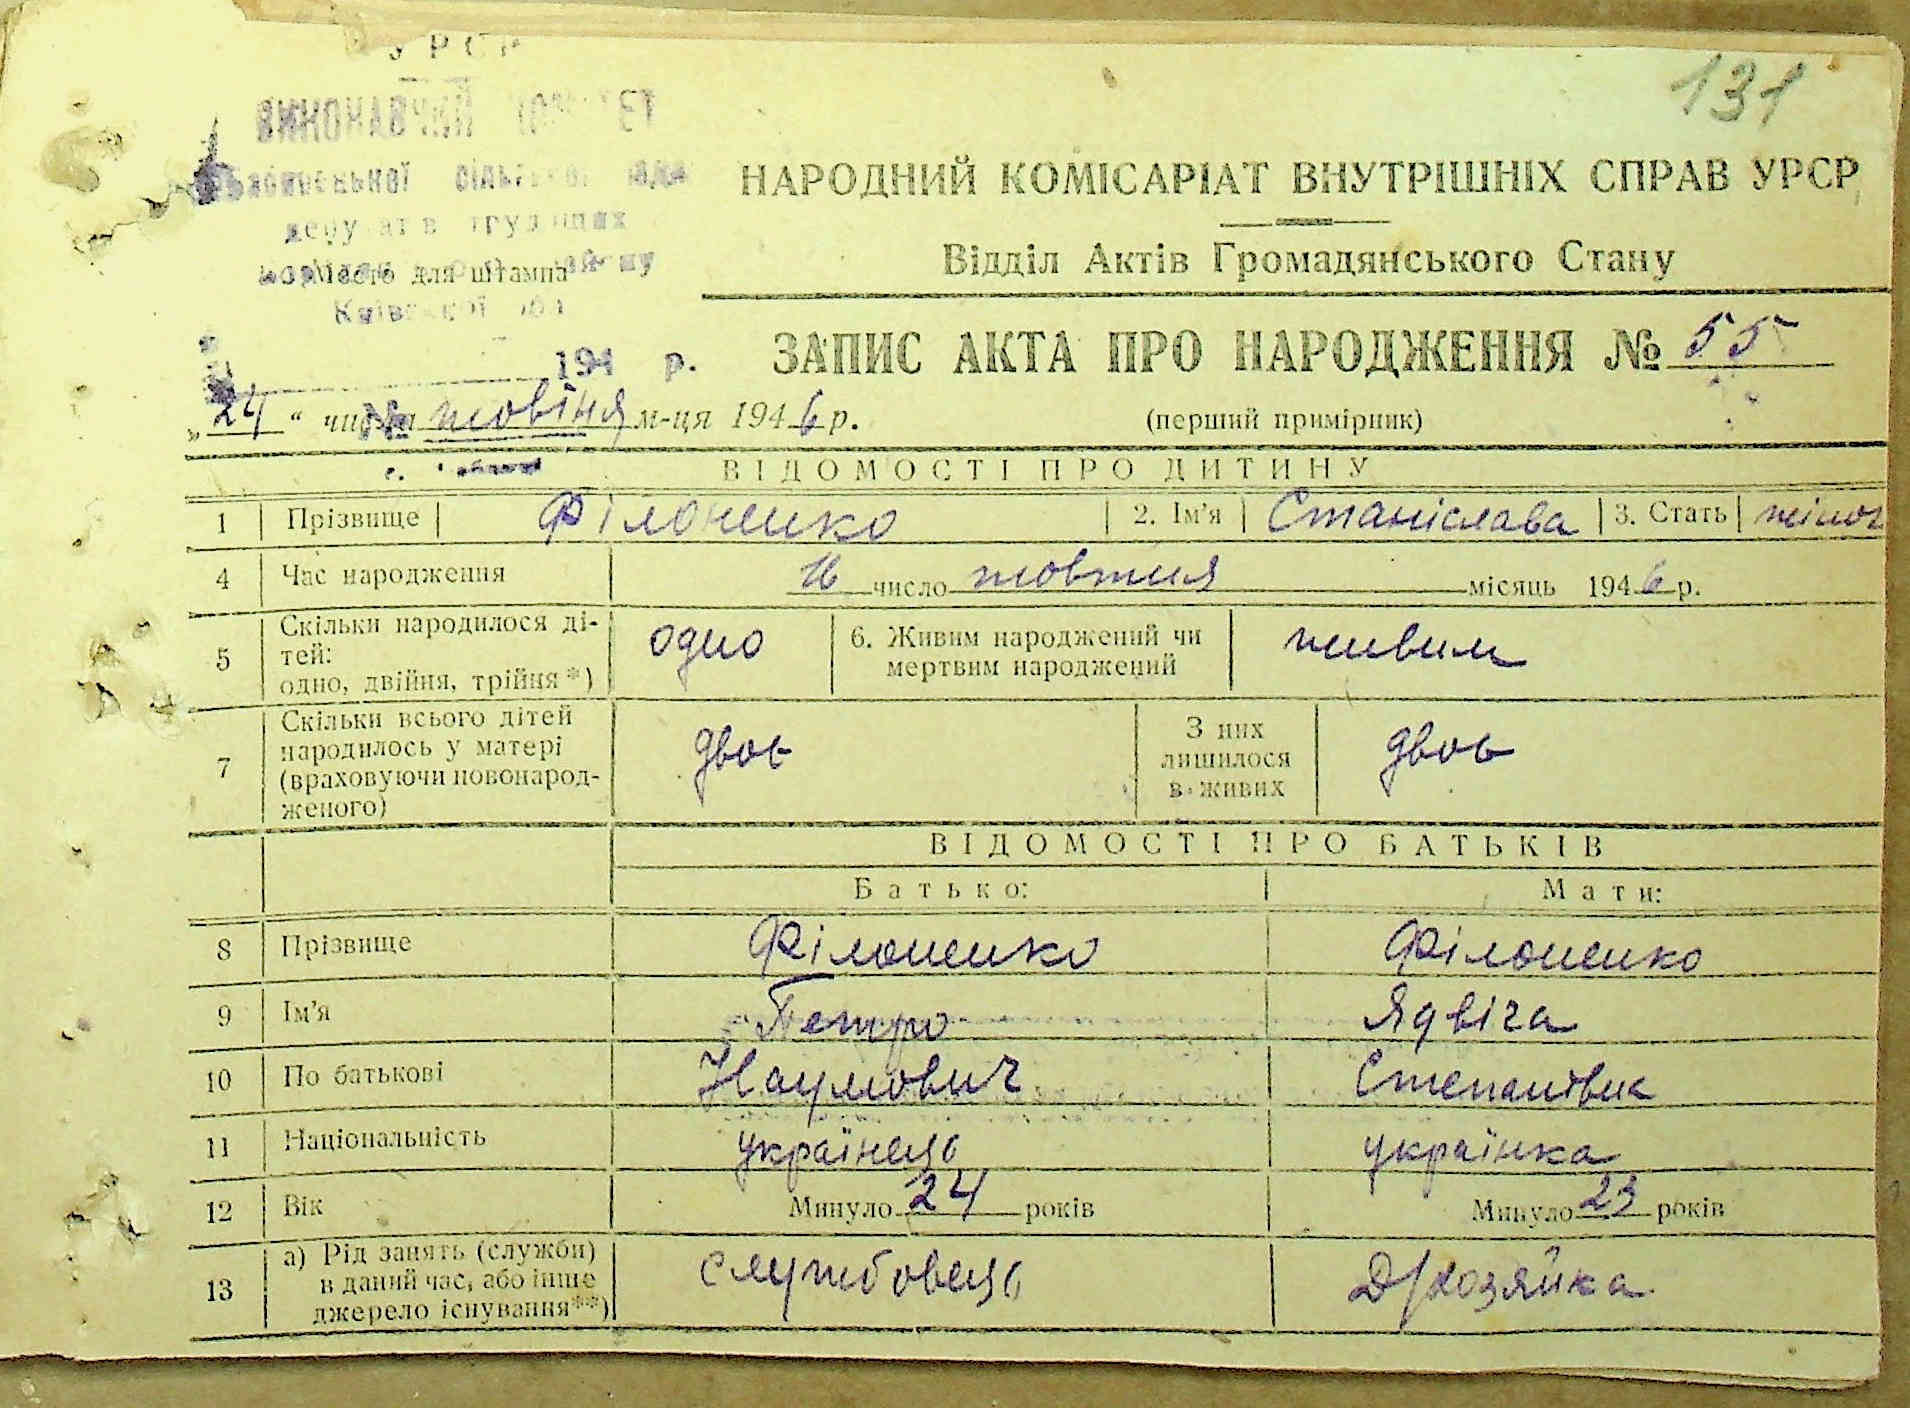 УРСР
131
ВИКОНАВЧИЙ
НАРОДНИЙ КОМІСАРІАТ ВНУТРІШНІХ СПРАВ УРСР
Место для штампа
Відділ Актів Громадянського Стану
194 р.
ЗАПИС АКТА ПРО НАРОДЖЕННЯ № 55
„24“ числа жовтня м-ця 1946 р.
(перший примірник)
ВІДОМОСТІ ПРО ДИТИНУ
1 Прізвище Філоненко 2. Ім'я Станіслава 3. Стать жіноч
4 Час народження 16 число жовтня місяць 1946 р.
5 Скільки народилося ді-
тей:
одно, двійня, трійня*) одно 6. Живим народжений чи
мертвим народжений живим
7 Скільки всього дітей
народилось у матері
(враховуючи новонарод-
женого) двоє З них
лишилося
в живих двоє
ВІДОМОСТІ ПРО БАТЬКІВ
Батько: Мати:
8 Прізвище Філоненко Філоненко
9 Ім'я Петро Ядвіга
10 По батькові Наумович Степанівна
11 Національність українець українка
12 Вік Минуло 24 років Минуло 23 років
13 а) Рід занять (служби)
в даний час, або інше
джерело існування**) службовець Д/хозяйка